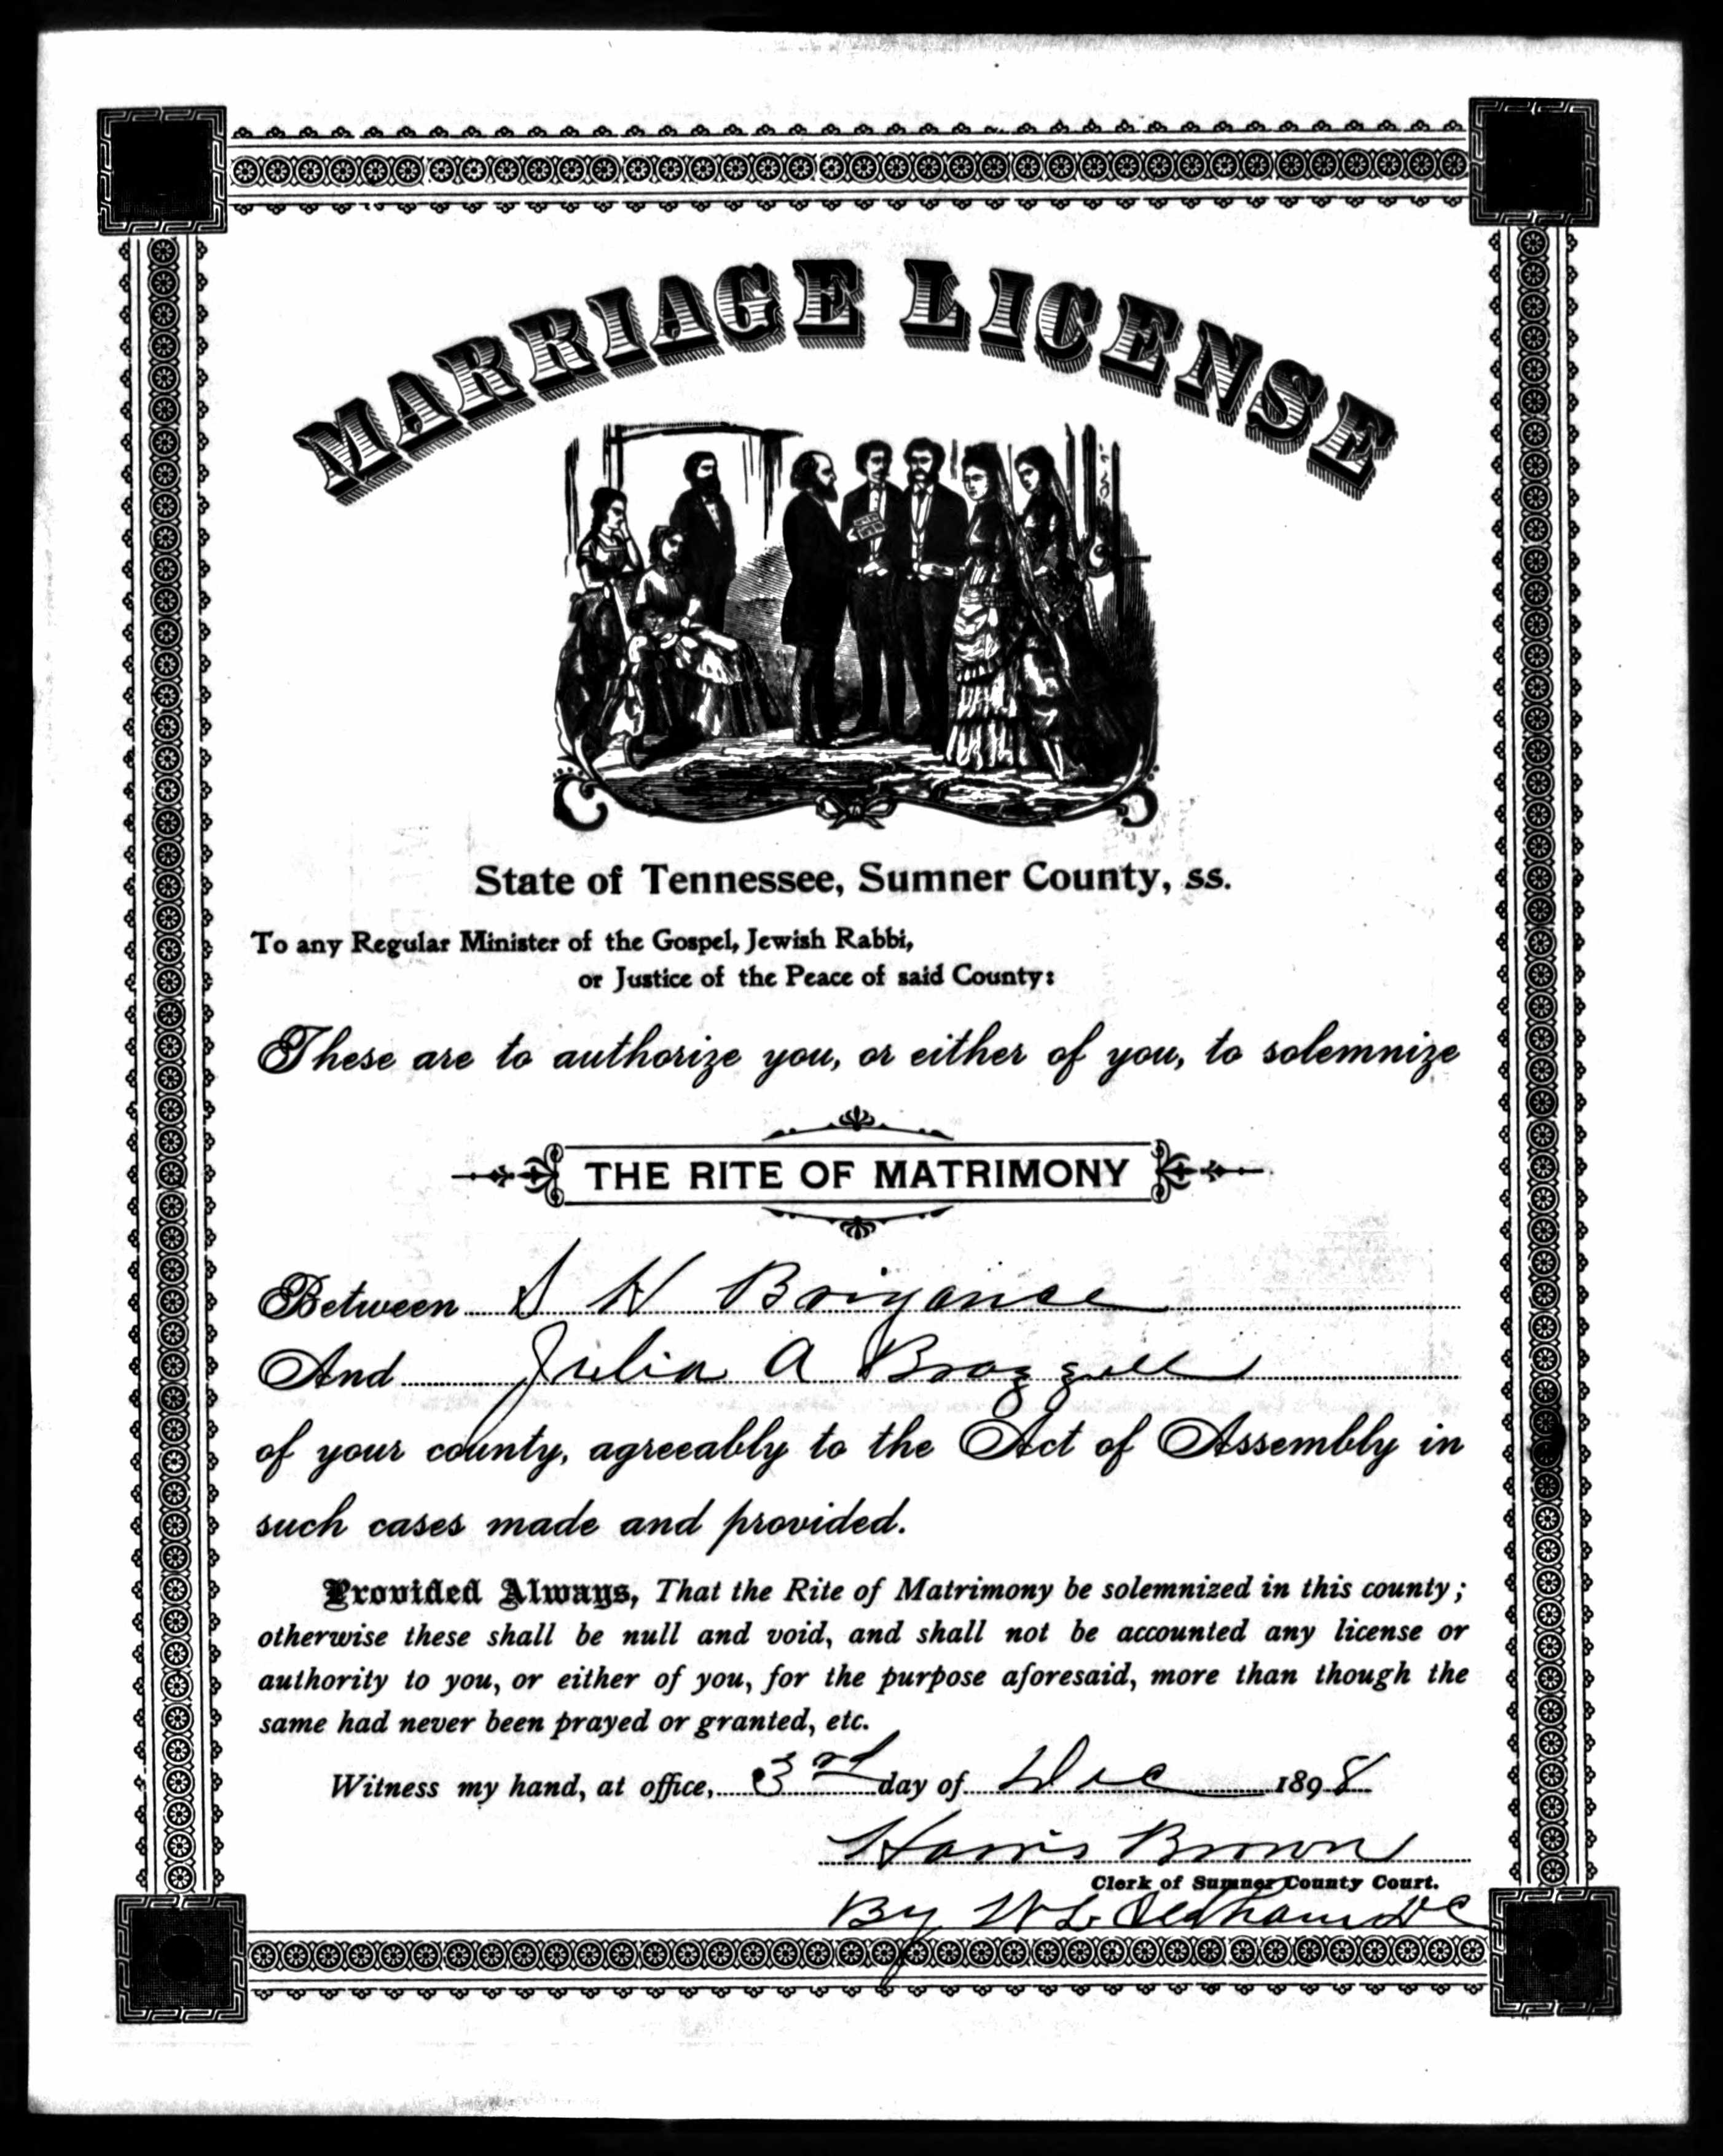 MARRIAGE LICENSE
State of Tennessee, Sumner County, ss.
To any Regular Minister of the Gospel, Jewish Rabbi,
or Justice of the Peace of said County:
These are to authorize you, or either of you, to solemnize
THE RITE OF MATRIMONY
Between S H Briganse
And Julia A Brazzell
of your county, agreeably to the Act of Assembly in
such cases made and provided.
Provided Always, That the Rite of Matrimony be solemnized in this county;
otherwise these shall be null and void, and shall not be accounted any license or
authority to you, or either of you, for the purpose aforesaid, more than though the
same had never been prayed or granted, etc.
Witness my hand, at office, 3rd day of Dec 1898
Harris Brown
Clerk of Sumner County Court.
By W L Oldham DC